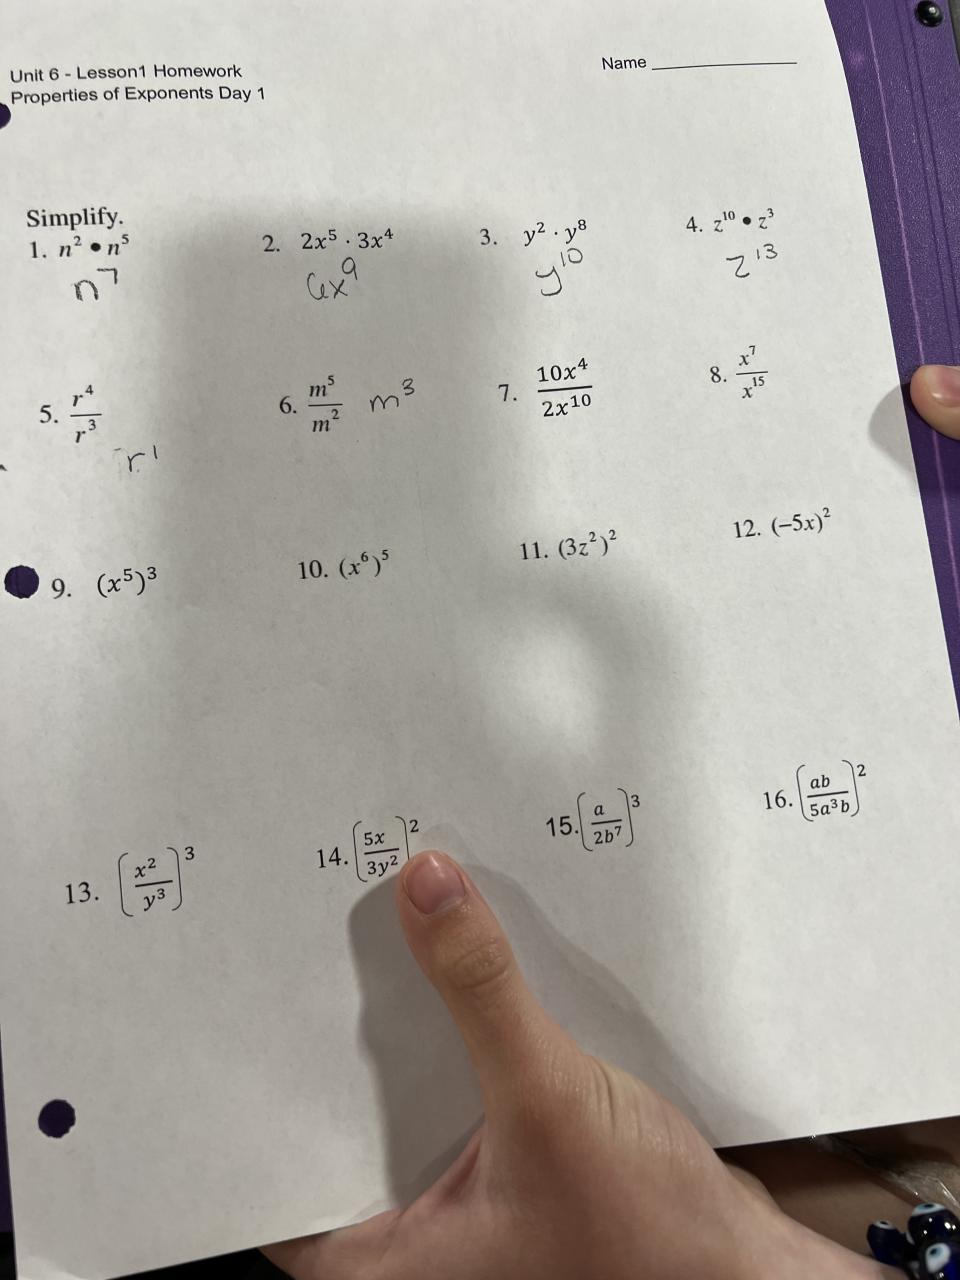 Unit 6 - Lesson1 Homework
Name ____________
Properties of Exponents Day 1
Simplify.
1. n² • n⁵
n⁷
2. 2x⁵ · 3x⁴
6x⁹
3. y² · y⁸
y¹⁰
4. z¹⁰ • z³
z¹³
5. r⁴/r³
r¹
6. m⁵/m²
m³
7. 10x⁴/2x¹⁰
8. x⁷/x¹⁵
9. (x⁵)³
10. (x⁶)⁵
11. (3z²)²
12. (−5x)²
13. (x²/y³)³
14. (5x/3y²)²
15. (a/2b⁷)³
16. (ab/5a³b)²